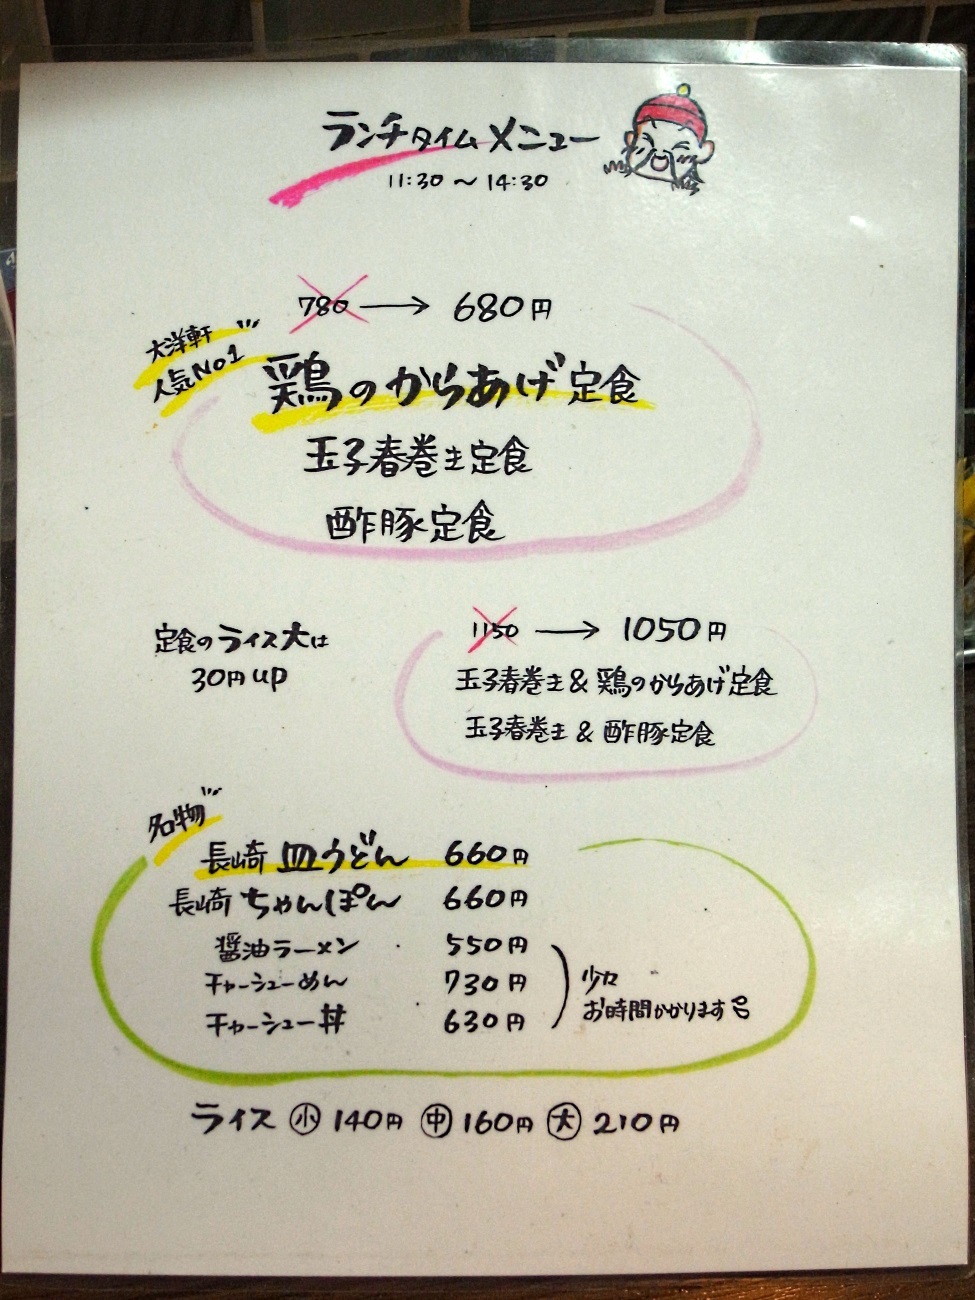 ランチタイムメニュー
11:30 〜 14:30
780 → 680円
大洋軒
人気No1
鶏のからあげ定食
玉子春巻き定食
酢豚定食
定食のライス大は
30円up
1150 → 1050円
玉子春巻き & 鶏のからあげ定食
玉子春巻き & 酢豚定食
名物
長崎 皿うどん 660円
長崎 ちゃんぽん 660円
醤油ラーメン 550円
チャーシューめん 730円
チャーシュー丼 630円
少々
お時間かかります
ライス 小 140円 中 160円 大 210円